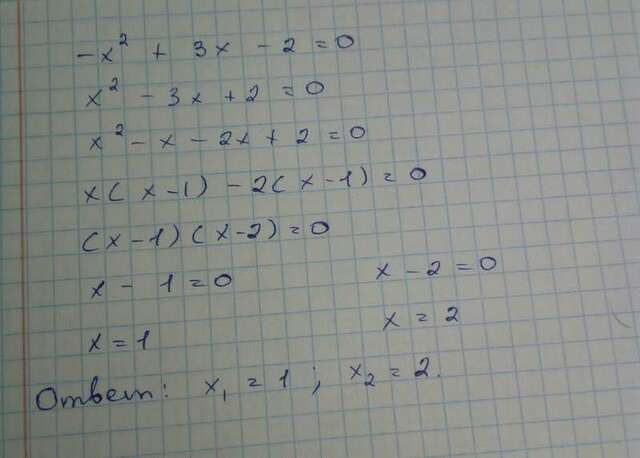 -x² + 3x - 2 = 0
x² - 3x + 2 = 0
x² - x - 2x + 2 = 0
x(x-1) - 2(x-1) = 0
(x-1)(x-2) = 0
x - 1 = 0 x - 2 = 0
x = 1 x = 2
Ответ: x₁ = 1; x₂ = 2.